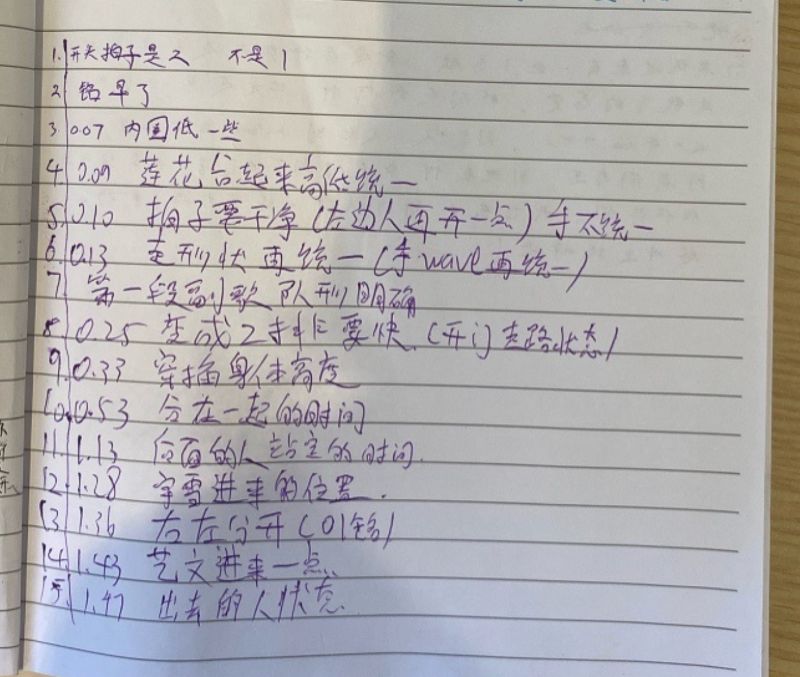 1. 开头拍子是2 不是1
2 铭早了
3 0.07 内圈低一些
4 0.09 莲花台起来高低统一
5. 0.10 拍子要干净(左边人再开一点)手不统一
6 0.13 走形状再统一(手wave再统一)
7 第一段副歌队形明确
8 0.25 变成2排要快.(开门走路状态)
9. 0.33 穿插身体高度
10. 0.53 合在一起的时间
11. 1.13 后面的人站定的时间.
12. 1.28 宇雪进来的位置.
13 1.36 右左分开(01铭)
14. 1.43 艺文进来一点.
15. 1.47 出去的人状态.